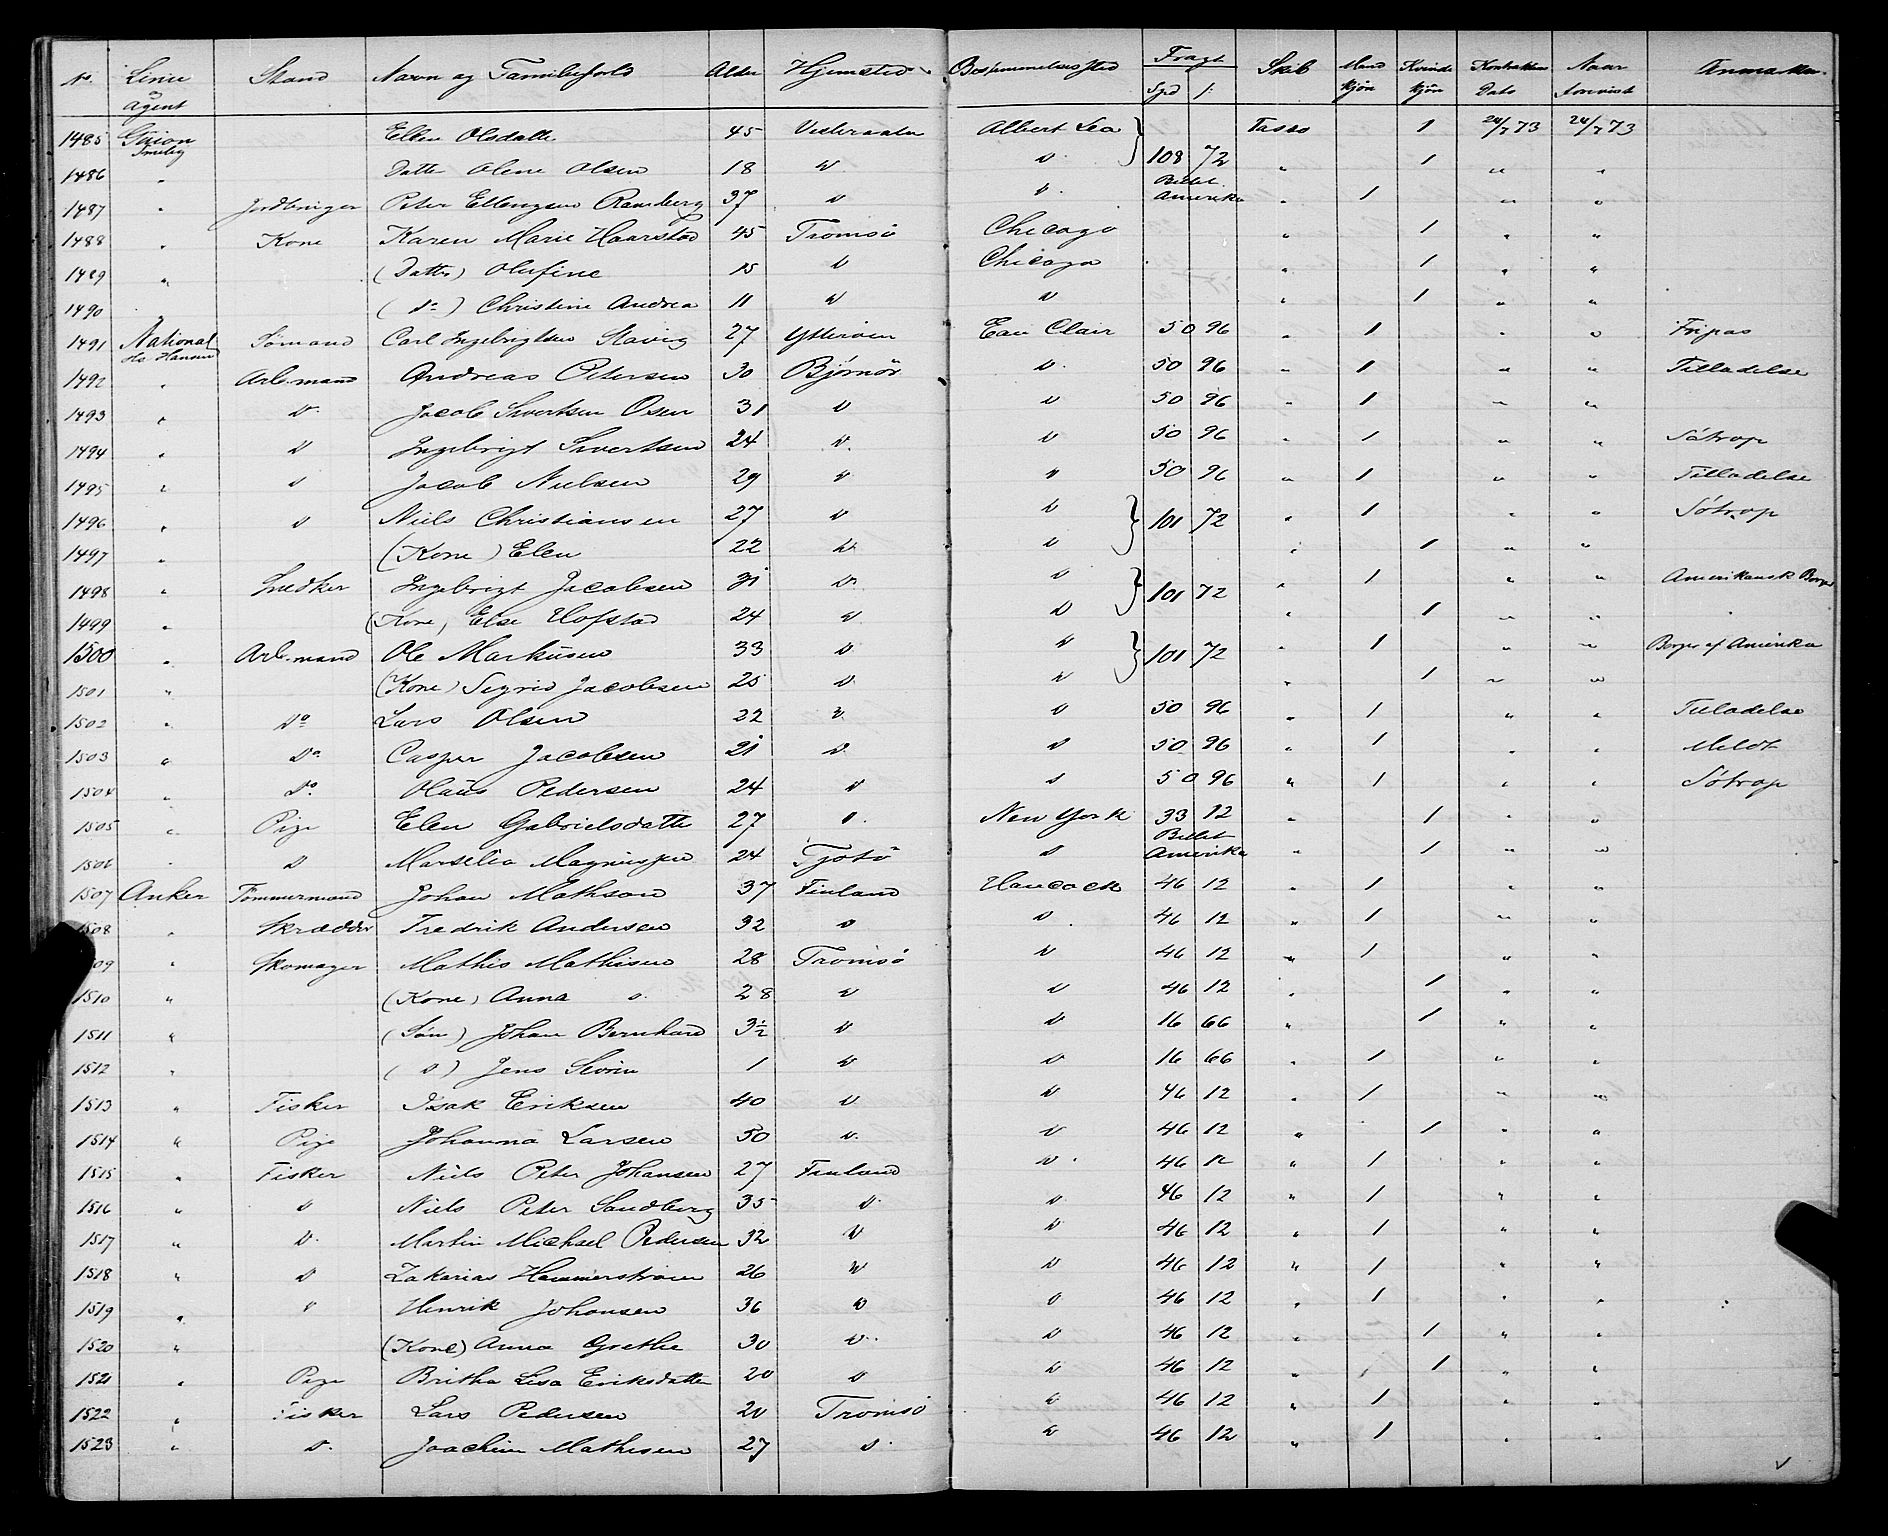 No. Linie og Agent Stand Navn og Familieforhold Alder Hjemsted Bestemmelsessted Fragt Spd ß Skib Mand kjön Kvinde kjön Kontraktens Dato Naar Anmærkn.
1485 Guion Ellen Olsdatter 45 Vesteraalen Albert Lea } Tasso 1 24/7 73 24/7 73
1486 " Datter Olene Olsen 18 D D 108 72 " 1 " "
1487 " Jordbruger Peter Ellingsen Ramberg 37 D D Billet Amerika " 1 " "
1488 " Kone Karen Marie Haarstad 45 Tromsö Chicago " 1 " "
1489 " (Datter) Olufine 15 D Chicago " 1 " "
1490 " (Do) Christine Andrea 11 D D " 1 " "
1491 National Ho Hansen Sömand Carl Ingebrigtsen Slavig 27 Ytteröen Eau Clair 50 96 " 1 " " Fripas
1492 " Arb.mand Andreas Petersen 30 Björnör D 50 96 " 1 " " Tilladelse
1493 " D Jacob Sivertsen Osen 31 D D 50 96 " 1 " "
1494 " D Ingebrigt Sivertsen 24 D D 50 96 " 1 " " Sötrop
1495 " D Jacob Nielsen 29 D D 50 96 " 1 " " Tilladelse
1496 " D Niels Christiansen 27 D D } 101 72 " 1 " " Sötrop
1497 " (Kone) Elen 22 D D " 1 " "
1498 " Snedker Ingebrigt Jacobsen 31 D D } 101 72 " 1 " " Amerikansk Borger
1499 " (Kone) Else Hofstad 24 D D " 1 " "
1500 " Arb.mand Ole Markusen 33 D D } 101 72 " 1 " " Borger af Amerika
1501 " (Kone) Sigrid Jacobsen 25 D D " 1 " "
1502 " Do Lars Olsen 22 D D 50 96 " 1 " " Tilladelse
1503 " Do Casper Jacobsen 21 D D 50 96 " 1 " " Meldt
1504 " Do Olaus Pedersen 24 D D 50 96 " 1 " " Sötrop
1505 " Pige Elen Gabrielsdatter 27 D New York 33 12 " 1 " "
1506 " D Marselia Magnusen 24 Tjotö D Billet Amerika " 1 " "
1507 Anker Tömmermand Johan Mathson 37 Finland Hancock 46 12 " 1 " "
1508 " Skrædder Fredrik Andersen 32 D D 46 12 " 1 " "
1509 " Skomager Mathis Mathisen 28 Tromsö D 46 12 " 1 " "
1510 " (Kone) Anna D 28 D D 46 12 " 1 " "
1511 " (Sön) Johan Bernhard 3½ D D 16 66 " 1 " "
1512 " (D) Jens Sivrin 1 D D 16 66 " 1 " "
1513 " Fisker Isak Eriksen 40 D D 46 12 " 1 " "
1514 " Pige Johanna Larsen 50 D D 46 12 " 1 " "
1515 " Fisker Niels Peter Johansen 27 Finland D 46 12 " 1 " "
1516 " D Niels Peter Sandberg 35 D D 46 12 " 1 " "
1517 " D Martin Michael Pedersen 32 D D 46 12 " 1 " "
1518 " D Zakarias Hammerström 26 D D 46 12 " 1 " "
1519 " D Henrik Johansen 36 D D 46 12 " 1 " "
1520 " (Kone) Anna Grethe 30 D D 46 12 " 1 " "
1521 " Pige Britha Lisa Eriksdatter 20 D D 46 12 " 1 " "
1522 " Fisker Lars Pedersen 20 Tromsö D 46 12 " 1 " "
1523 " D Joachim Mathisen 27 D D 46 12 " 1 " "